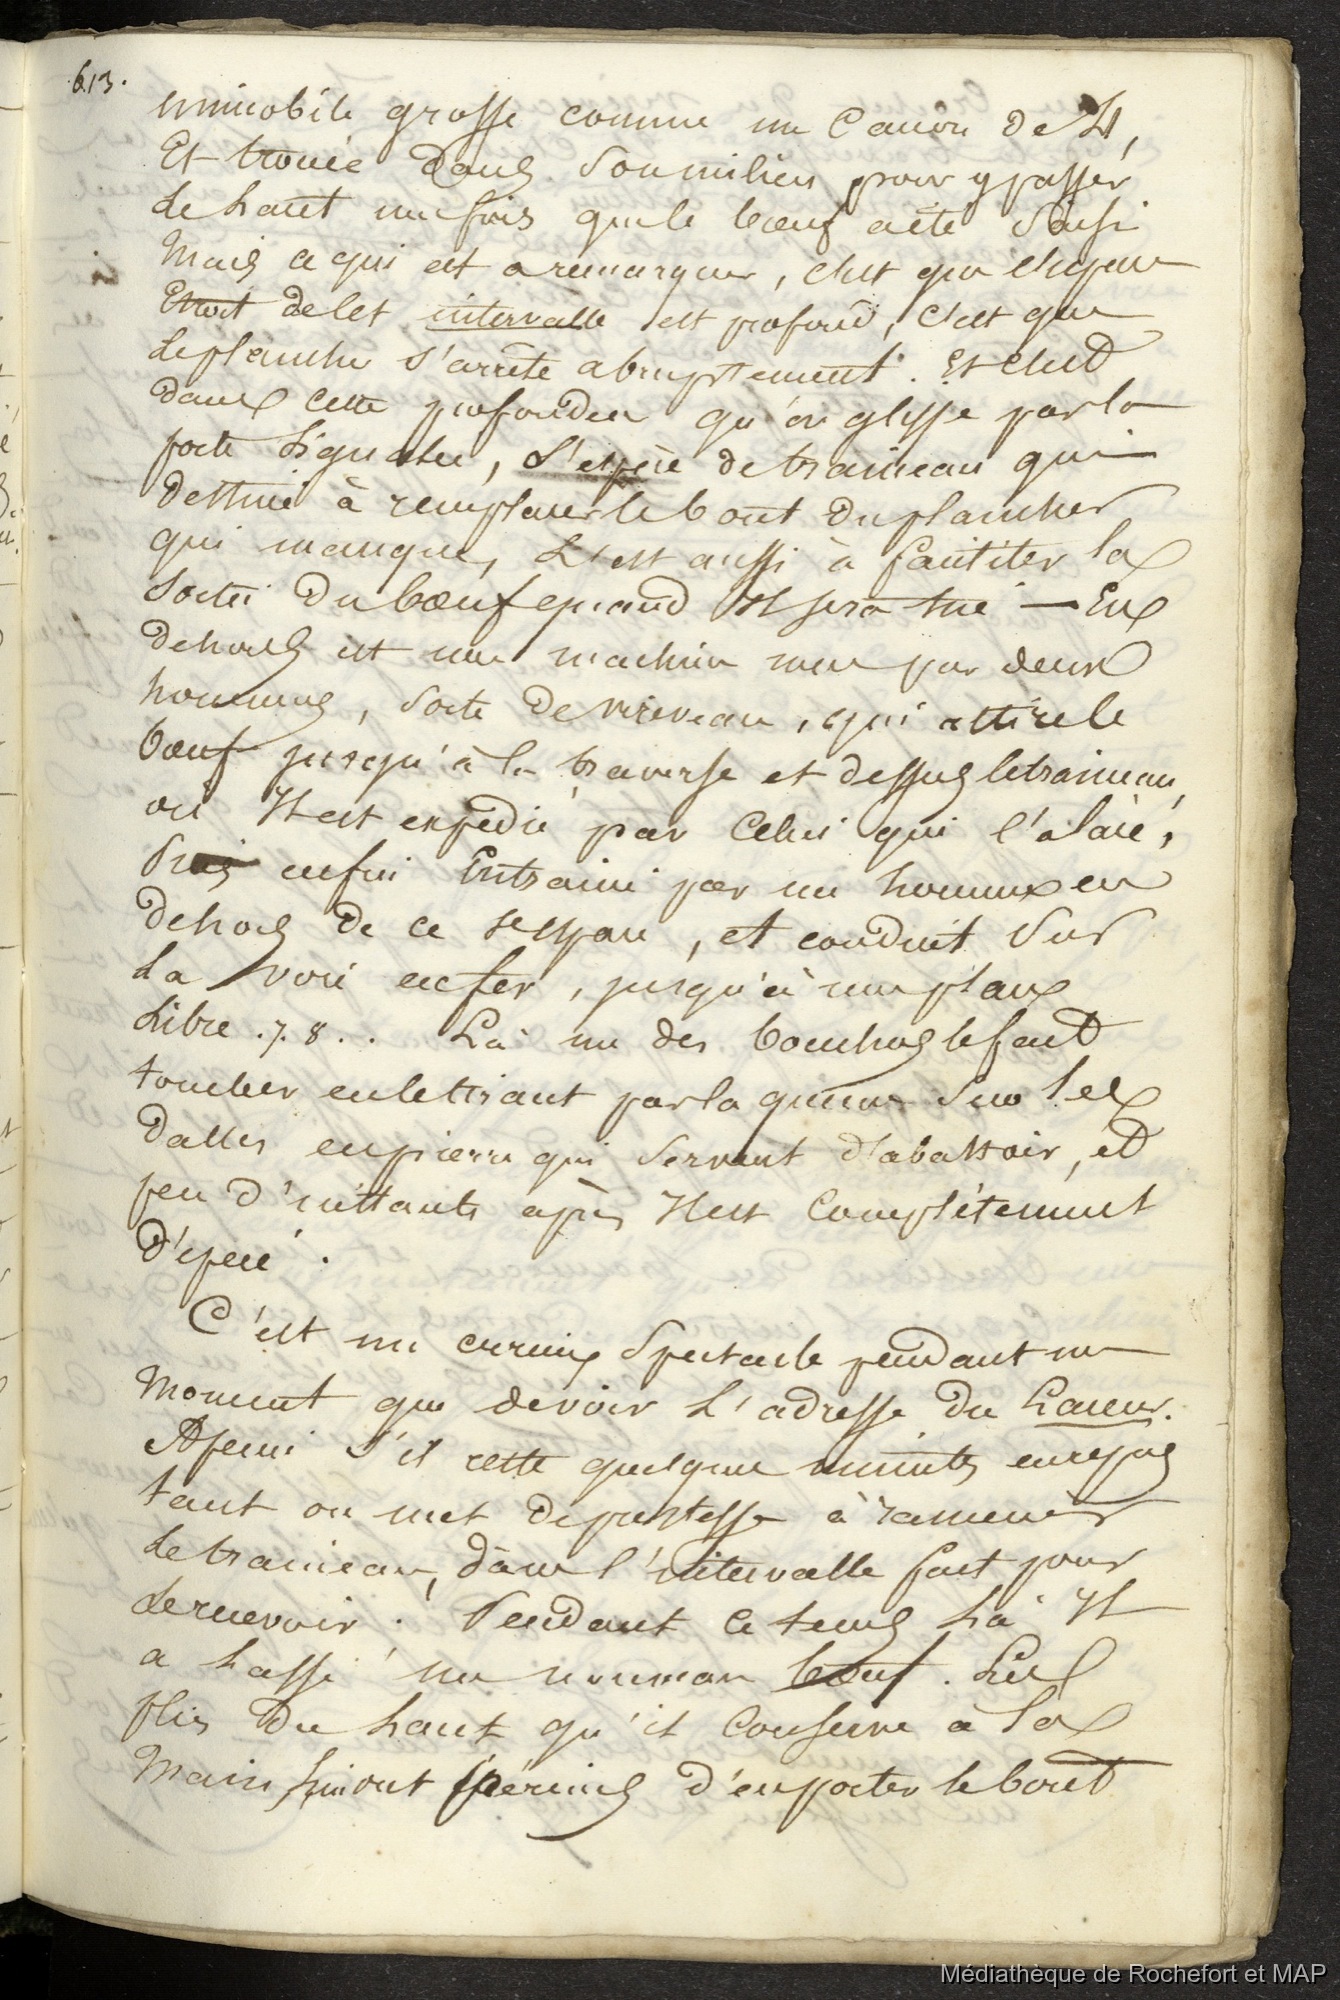 613.
immobile grosse comme un Canon de 4,
Et trouée dans son milieu pour y passer
le haut une fois que le bœuf a été saisi
Mais ce qui est a remarquer, c'est que l'espace
Etroit de cet intervalle est profond, c'est que
le plancher s'arrête abruptement. Et c'est
dans cette profondeur qu'on glisse par la
porte signalée, l'espèce de traineau qui
destiné à remplacer le bout du plancher
qui manque, L'est aussi à faciliter la
sortie du bœuf quand Il sera tué — En
dehors est une machine mue par deux
hommes, sorte de vireveau, qui attire le
bœuf jusqu'à la traverse et dessus le traineau,
où Il est expédié par Celui qui l'a lacé,
Puis enfin Entrainé par un homme en
dehors de ce espace, et conduit sur
La voie en fer, jusqu'à une place
Libre .7.8.. Là un des bouchers le fait
tomber en le tirant par la queue sur les
dalles en pierre qui servent d'abattoir, et
peu d'instants après Il est Complétement
d'épecé.
C'est un curieux Spectacle pendant un
Moment que de voir L'adresse du Laceur.
A peine s'il reste quelques minutes en repos
tant on met de prestesse à ramener
le traineau, dans l'intervalle fait pour
le recevoir. Pendant ce tems Là Il
a Lassé un nouveau bœuf. Les
plis du Lacet qu'il Conserve à la
Main lui ont permis d'en porter le bout
Médiathèque de Rochefort et MAP